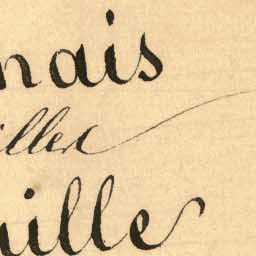 nais
iller
uille